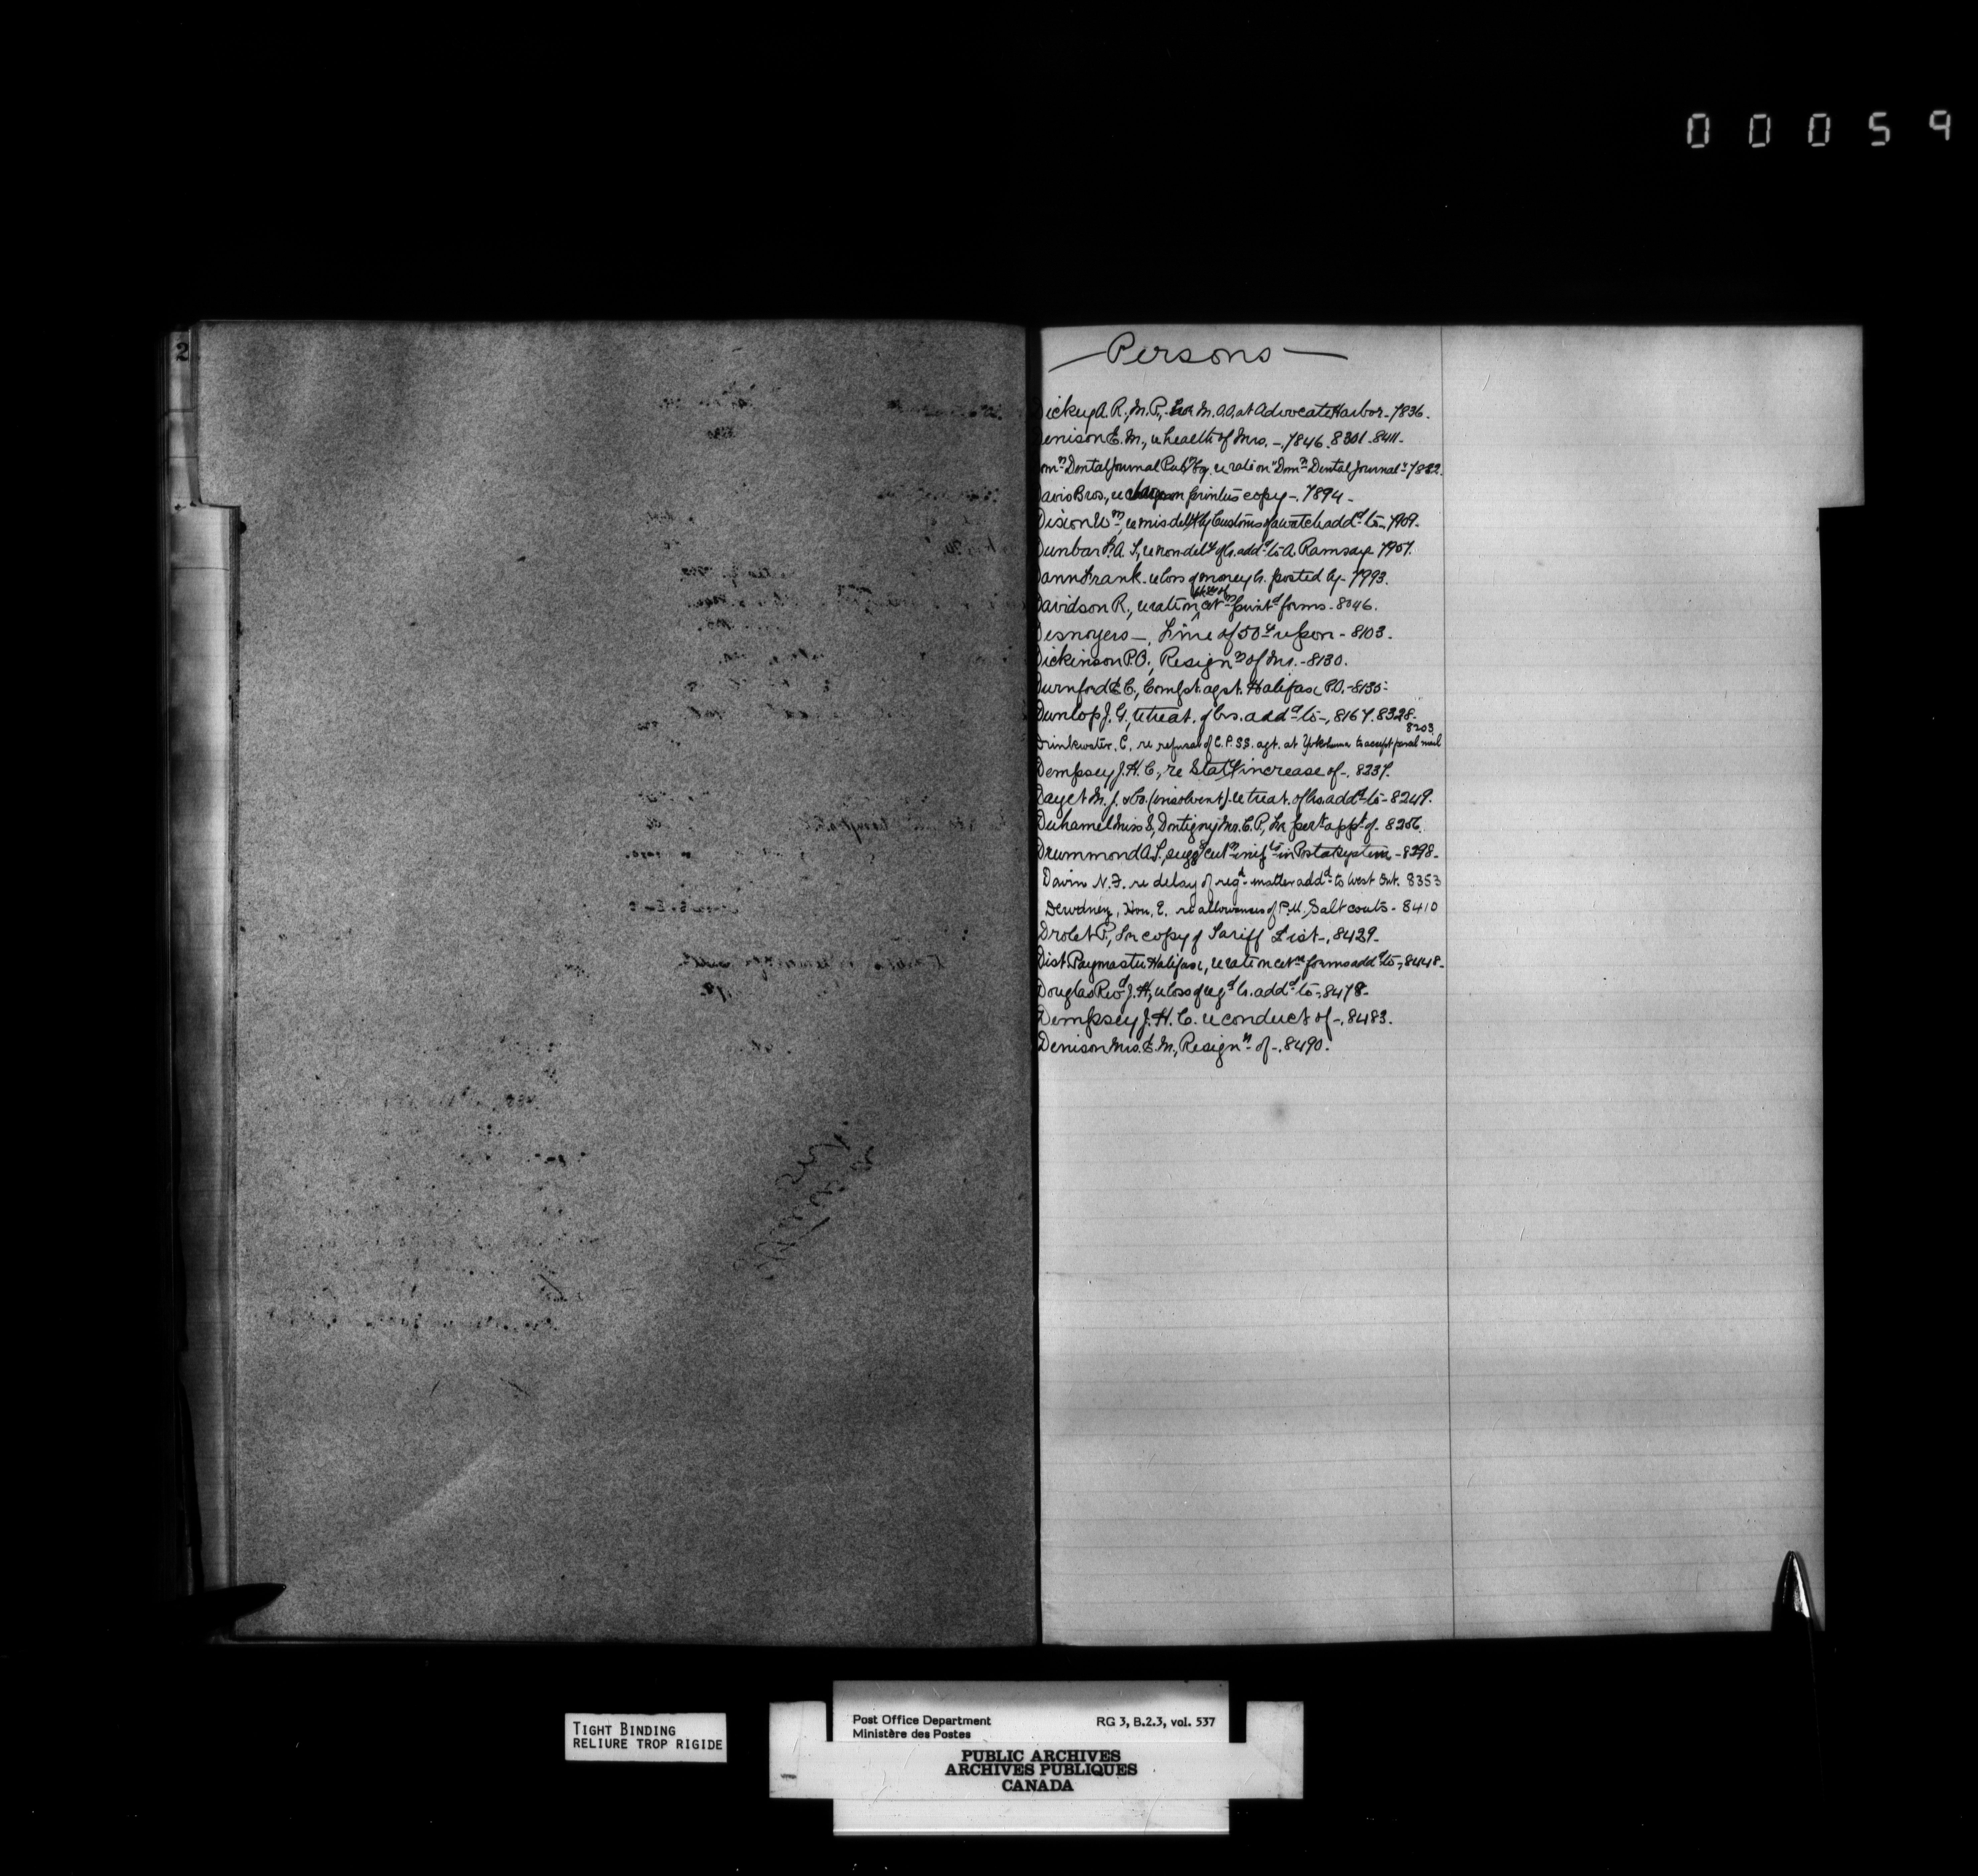 00059
2
Persons
Dickey A. R., M.P., for M.O.O. at Advocate Harbor - 7836.
Denison E. M., re health of Mrs. -, 7846. 8301. 8411.
Domn Dental Journal Pubg Co. re rate on "Domn Dental Journal" 7882.
Davis Bros., re on printers copy -. 7894 -
Dixon Wm, re misdely by Customs of a watch addd to -, 7909.
Dunbar A. S., re nondely of lr. addd to A. Ramsay 7907.
Dann Frank. re loss of money lr. posted by - 7993.
Davidson R., re rate on printd forms - 8046.
Desnoyers -, Fine of 50¢ upon - 8103.
Dickinson P.O., Resignn of Mr. - 8130.
Durnford E. C., Complt. agst. Halifax P.O. - 8135.
Dunlop J. G., re treat. of lrs. addd to -, 8167. 8328.
8203
Drinkwater, C. re refusal of C.P.SS. agt. at Yokohama to accept parcel mail
Dempsey J. H. C., re Staty increase of -. 8237.
Dayet M. J. & Co. (insolvent). re treat. of lrs. addd to - 8249.
Duhamel Miss S., Dontigny Mrs. C. P., for pert appt of - 8256.
Drummond A. T., sugg in Postal system - 8298 -
Davin N. F. re delay of regd matter addd to West Ont. 8353
Dewdney, Hon. E. re allowances of P.M. Saltcoats - 8410
Drolet P., for copy of Tariff List -, 8429 -
Dist. Paymaster Halifax, re rate on forms addd to -, 8448 -
Douglas Revd J. H., re loss of regd lr. addd to -, 8478 -
Dempsey J. H. C. re conduct of -, 8483.
Denison Mrs. E. M., Resignn of -. 8490.
TIGHT BINDING
RELIURE TROP RIGIDE
Post Office Department RG 3, B.2.3, vol. 537
Ministère des Postes
PUBLIC ARCHIVES
ARCHIVES PUBLIQUES
CANADA